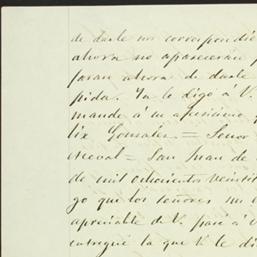 de darle no correspondie
ahora no apareceran p
foran ahora de darle
pida. Yo le digo á V.
mande á su afectisimo
lix Gonzalez = Señor
Noval = San Juan de
de mil ochocientos veinti
go que los señores
apreciable de V. pasé á V
entregué la que V. le di